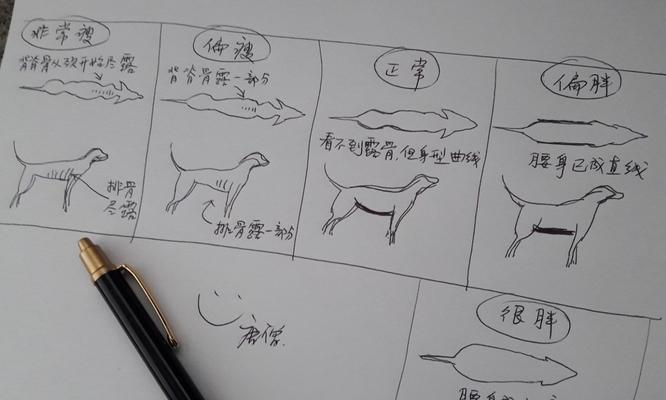 非常瘦
偏瘦
正常
偏胖
背脊骨从颈开始尽露
背脊骨露一部分
看不到露骨,但身型曲线
腰身已成直线
排骨
尽露
排骨露一部分
很胖